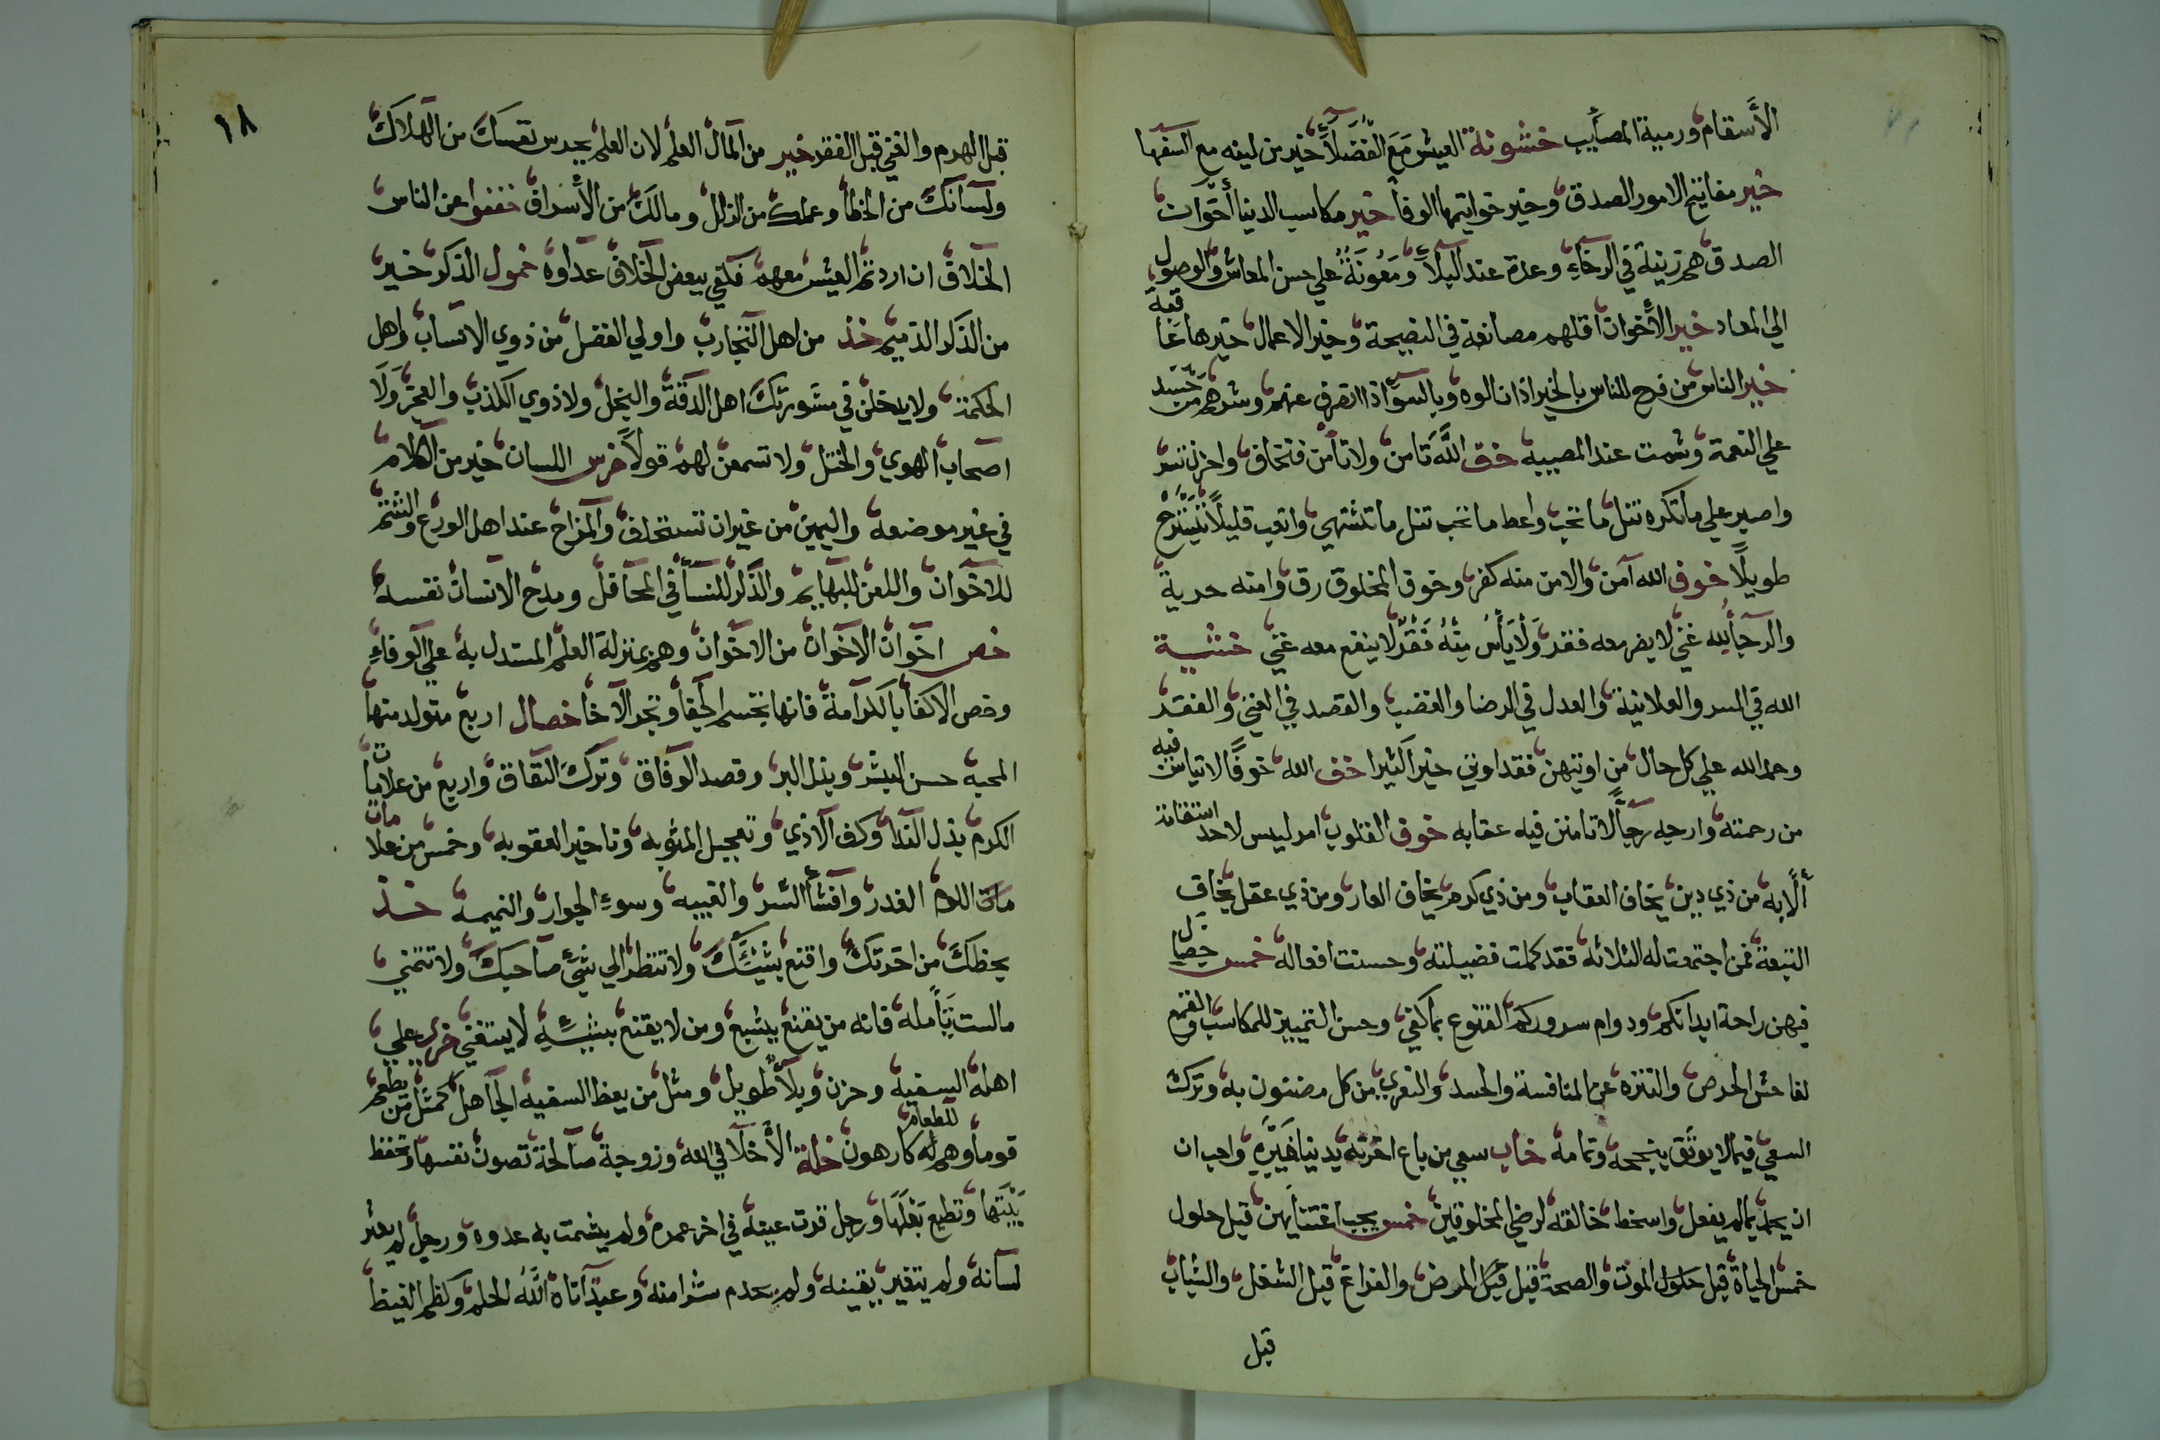 الأسقام ورمية المصأيب خشونة العيش مَعَ الفُضَلآَ خير من لينه مع السفها
خير مفاتيح الامور الصدق وخير خواتيمها الوفا خير مكاسب الدنيا أخوان
الصدق هم زينة في الرخآءِ وعدة عند البلآَ ومَعُونَةُ علي حسن المعاش والوصول
الي المعاد خير الأَخوان اقلهم مصانعة في النصيحة وخير الاعمال خيرها عاقبة
خير الناس من فرح للناس بالخير اذا نالوه وبالسوٓ اذا انصرف عنهم وشرهم من حَسَد
علي النعمة وشمت عند المصيبه خف اللَّه تامن ولا تأمن فتخاف واحزن تسر
واصبر علي ما تكره تنل ما تحب واعط ما تحب تنل ما تشتهي واتعب قليلًا تَسْتَرْحِ
طويلًا خوف الله آمن والامن منه كفر وخوف المخلوق رق وامنه حرية
والرجآ لِله غني لا يضر معه فقر وَلْاِيَأْسُ مِنْهُ فَقْرٌ لا ينفع معه غني خشية
الله في السر والعلانية والعدل في الرضا والغضب والقصد في الغني والفقر
وحمد الله علي كل حال من اوتيهن فقد اوتي خيرا كثيرا خف الله خوفًا لا تياس فيه
من رحمته وارجه رجآًَ لا تامنن فيه عقابه خوف القلوب امر ليس لاحد استقامة
ألَّا به من ذي دين يخاف العقاب ومن ذي كرم يخاف العار ومن ذي عقل يخاف
التبعة فمن اجتمعتا له الثلاثه فقد كملت فضيلته وحسنت افعاله خمس خصال
فيهن راحة ابدانكم ودوام سروركم القنوع بما كفي وحسن التمييز للمكاسب والقمع
لفاحش الحرص والتنزه عن المنافسة والحسد والتعري من كل مضنون به وترك
السعي فيما لا يوثق بنجحه وتمامه خاب سعي من باع اخرته بدنيا غَيْرِهِ واحب ان
ان يحمد بما لم يفعل واسخط خالقه لرضي المخلوقين خمس يجب اغتنائهن قبل حلول
خمس الحياة قبل حلول الموت والصحة قبل قبل المرض والفراغ قبل الشغل والشباب
قبل
١٨
قبل الهرم والغني قبل الفقر خير من المال العلم لان العلم يحرس نفسك من الهلاك
ولسآنكَ من الخطأ وعملك من الزلل ومالكَ من الأسراف خففوا عن الناس
الخلاق ان اردتم العيش معهم فكفي ببعض الخلاق عداوه خمول الذكر خير
من الذكر الذميم خذ من اهل التجارب واولي الفضل من ذوي الانساب واهل
الحكمة ولا يدخلن في مشورتكَ اهل الدقة والبخل ولا ذوي الكذب والعجز وَلَا
اصحاب الهوي والختل ولا تسمعن لهم قولاً خرس اللسان خير من الكلام
في غير موضعه واليمين من غير ان تستحلف والمزاح عند اهل الورع والشتم
للاخوان واللعن للبهايم والذكر للنسآ في المحافل ومدح الانسان نفسه
خص اخوان الاخوان من الاخوان وهم بمنزلة العلم المستدل به علي الوفاءِ
وخص الاكفا بالكرامة فانها تحسم الحقد وتجر الاخا خصال اربع متولد منها
المحبه حسن البشر وبذل البر وقصد الوفاق وترك النفاق واربع من علامات
الكرم بذل الندا وكف الاذي وتعجيل المثوبه وتاخير العقوبه وخمس من علامات
مات اللوم الغدر وافشأ السر والغيبه وسوءِ الجوار والنميمه خذ
بحظكَ من اخرتكَ واقنع بِشَيْئِكَ ولا تنظر الي شيءِ صاحبكَ ولا تتمني
ما لست بَآمله فانه من يقنع يشبع ومن لا يقنع بِشَيْئِهِ لا يستغني خزي علي
اهله السفيه وحزن وبِلآ طويل ومثل من يعظ السفيه الجاهل كمثل من يطعم
قوماً وهم له كارهون للطعام خلة الأَخلآ في الله وزوجة صالحة تصون نفسها وتحفظ
بَيْتَها وتطيع بَعْلَهَا ورجل قرت عينه في اخر عمره ولم يشمت به عدوه ورجل لم يعثر
لسانه ولم يتغير يقينه ولم يحدم شرامنه وعبد آتاه اللَّه الحلم وكظم الغيظ